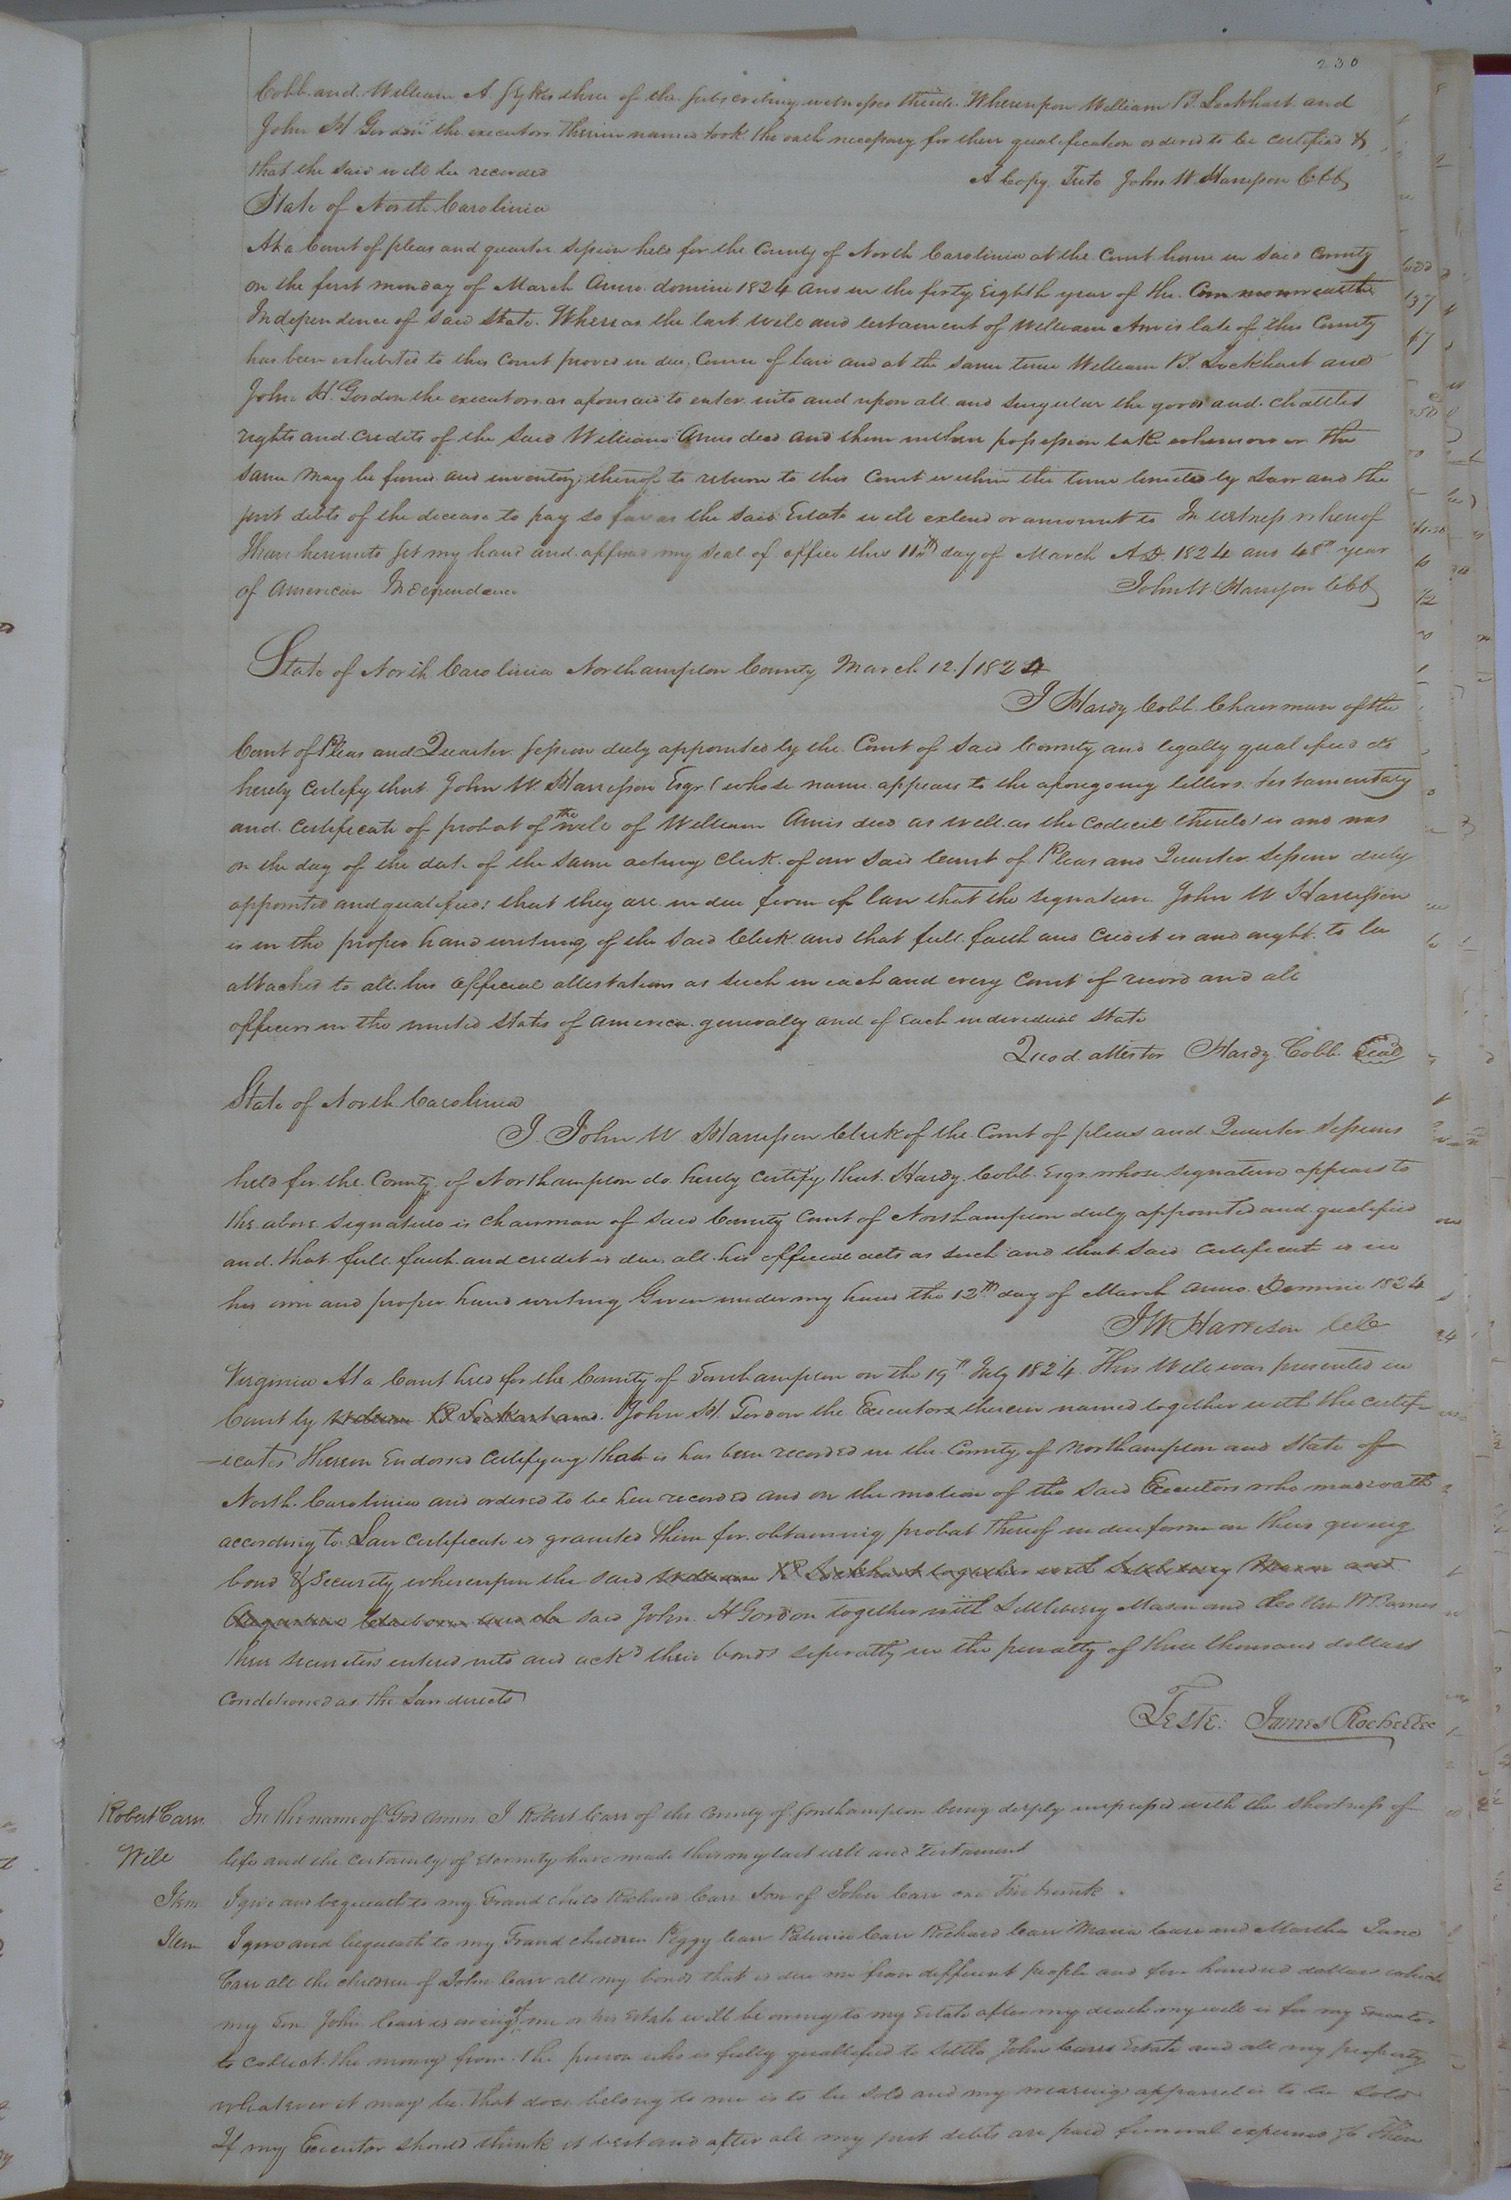 230
Cobb and William A. Sykes three of the subscribing witnesses thereto. Whereupon William B. Lockhart and
John H Gordon the executors therein named took the oath necessary for their qualification ordered to be certified &
that the said will be recorded
A Copy Teste John W. Harrison CCC
State of North Carolinia
At a Court of pleas and quarter session held for the County of North Carolinia at the Court house in said County
on the first monday of March Anno domini 1824 and in the forty eighth year of the Commonwealth
Independence of said State. Whereas the last will and testament of William Amis late of this County
has been exhibited to this Court proved in due course of law and at the same time William B. Lockhart and
John H. Gordon the executors as aforesaid to enter into and upon all and singular the goods and chattles
rights and credits of the said William Amis decd and them in their possession take wheresoever the
same may be found and inventory thereof to return to this Court within the time limited by Law and the
just debts of the decease to pay so far as the said Estate will extend or amount to In witness whereof
I have hereunto set my hand and affixed my seal of office this 11th day of March A.D. 1824 and 48th year
of American Independence
John W. Harrison CCC
State of North Carolinia Northampton County March 12/1824
I Hardy Cobb Chairman of the
Court of Pleas and Quarter Session duly appointed by the Court of said County and legally qualified do
hereby certify that John W. Harrison Esqr (whose name appears to the aforegoing letters testamentary
and certificate of probat of the will of William Amis decd as well as the codicil thereto) is and was
on the day of the date of the same acting Clerk of our said Court of Pleas and Quarter Session duly
appointed and qualified: that they are in due form of law that the signature John W Harrison
is in the proper hand writing of the said Clerk and that full faith and credit is and ought to be
attached to all his official attestations as such in each and every Court of record and all
officers in the united States of America generally and of each individual State
Quod attestor Hardy Cobb Seal
State of North Carolinia
I John W Harrison Clerk of the Court of pleas and Quarter Sessions
held for the County of Northampton do hereby certify that Hardy Cobb Esqr whose signature appears to
the above signature is chairman of said County Court of Northampton duly appointed and qualified
and that full faith and credit is due all his official acts as such and that said certificate is in
his own and proper hand writing Given under my hand the 12th day of March Anno Domini 1824
J W Harrison CCC
Virginia At a Court held for the County of Southampton on the 19th July 1824 This Will was presented in
Court by William B Lockhart and John H. Gordon the Executors therein named together with the certif-
-icates thereon Endorsed certifying that is has been recorded in the County of Northampton and State of
North Carolinia and ordered to be here recorded and on the motion of the said Executors who made oath
according to Law certificate is granted them for obtaining probat thereof in due form on their giving
bond & security whereupon the said William B Lockhart together with Littlebury Mason and
said John H Gordon together with Littlebury Mason and Barnes
their securities entered into and ackd their bonds seperatly in the penalty of three thousand dollars
conditioned as the Law directs
Teste: James Rochelle
Robert Carr In the name of God Amen I Robert Carr of the County of Southampton being deeply impressed with the shortness of
Will life and the certainty of eternity have made this my last will and Testament
Item I give and bequeath to my Grand child Richard Carr Son of John Carr one Tin trunk.
Item I give and bequeath to my Grand children Peggy Carr Carr Richard Carr Maria Carr and Martha Jane
Carr all the children of John Carr all my bonds that is due me from different people and five hundred dollars which
my Son John Carr is owing of me or his Estate will be owing to my Estate after my death my will is for my Executor
to collect the money from the person who is fully quallified to settle John Carrs Estate and all my property
whatever it may be that does belong to me is to be sold and my wearing apparrel is to be sold
If my Executor should think it best and after all my just debts are paid funeral expenses &c Then